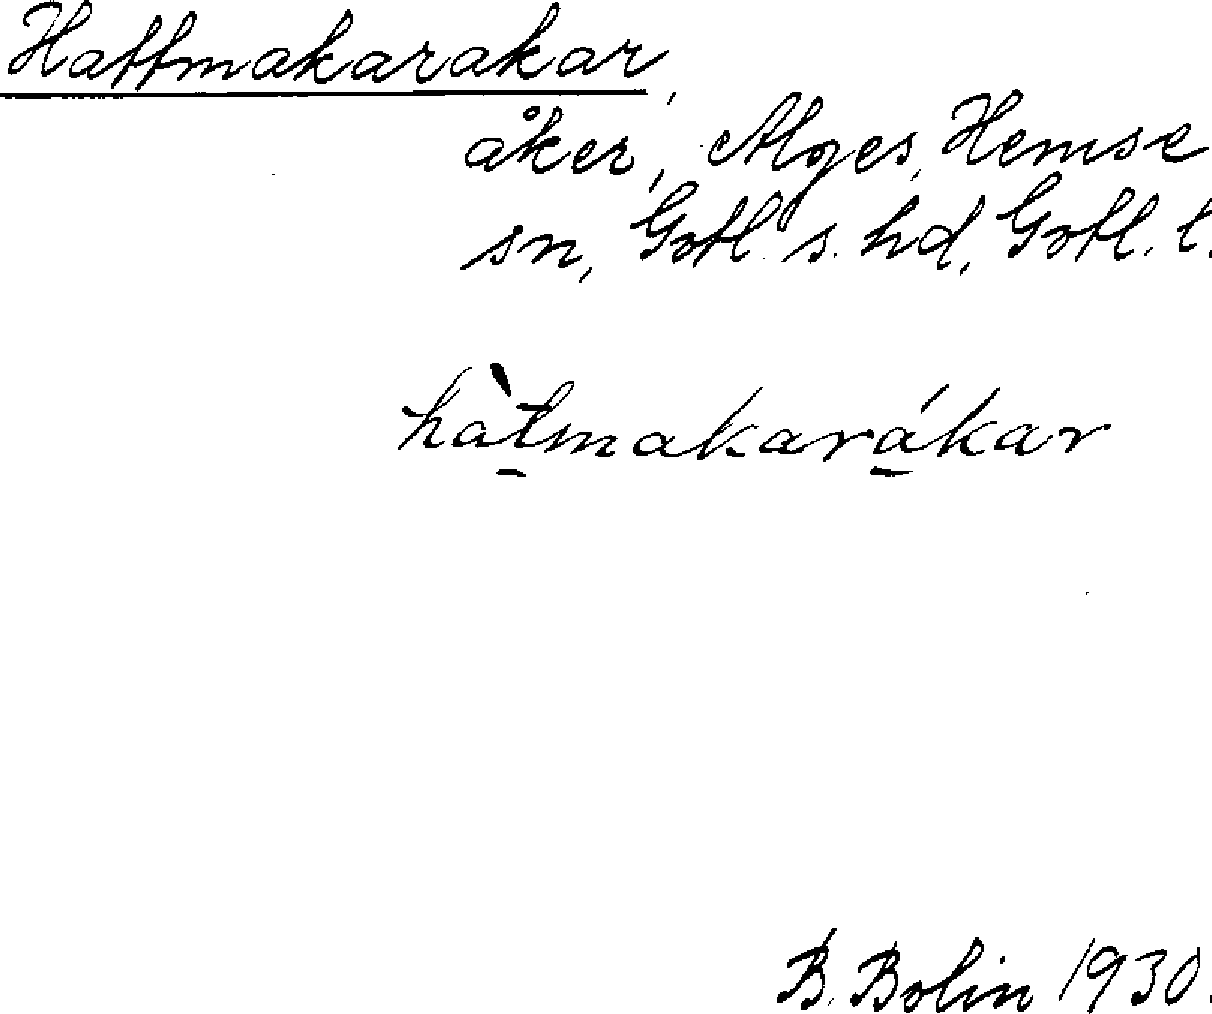 Hattmakarakar,
åker, Alges, Hemse
sn, Gotl. s. hd, Gotl. l.
hàtmakarákar
B. Bolin 1930.